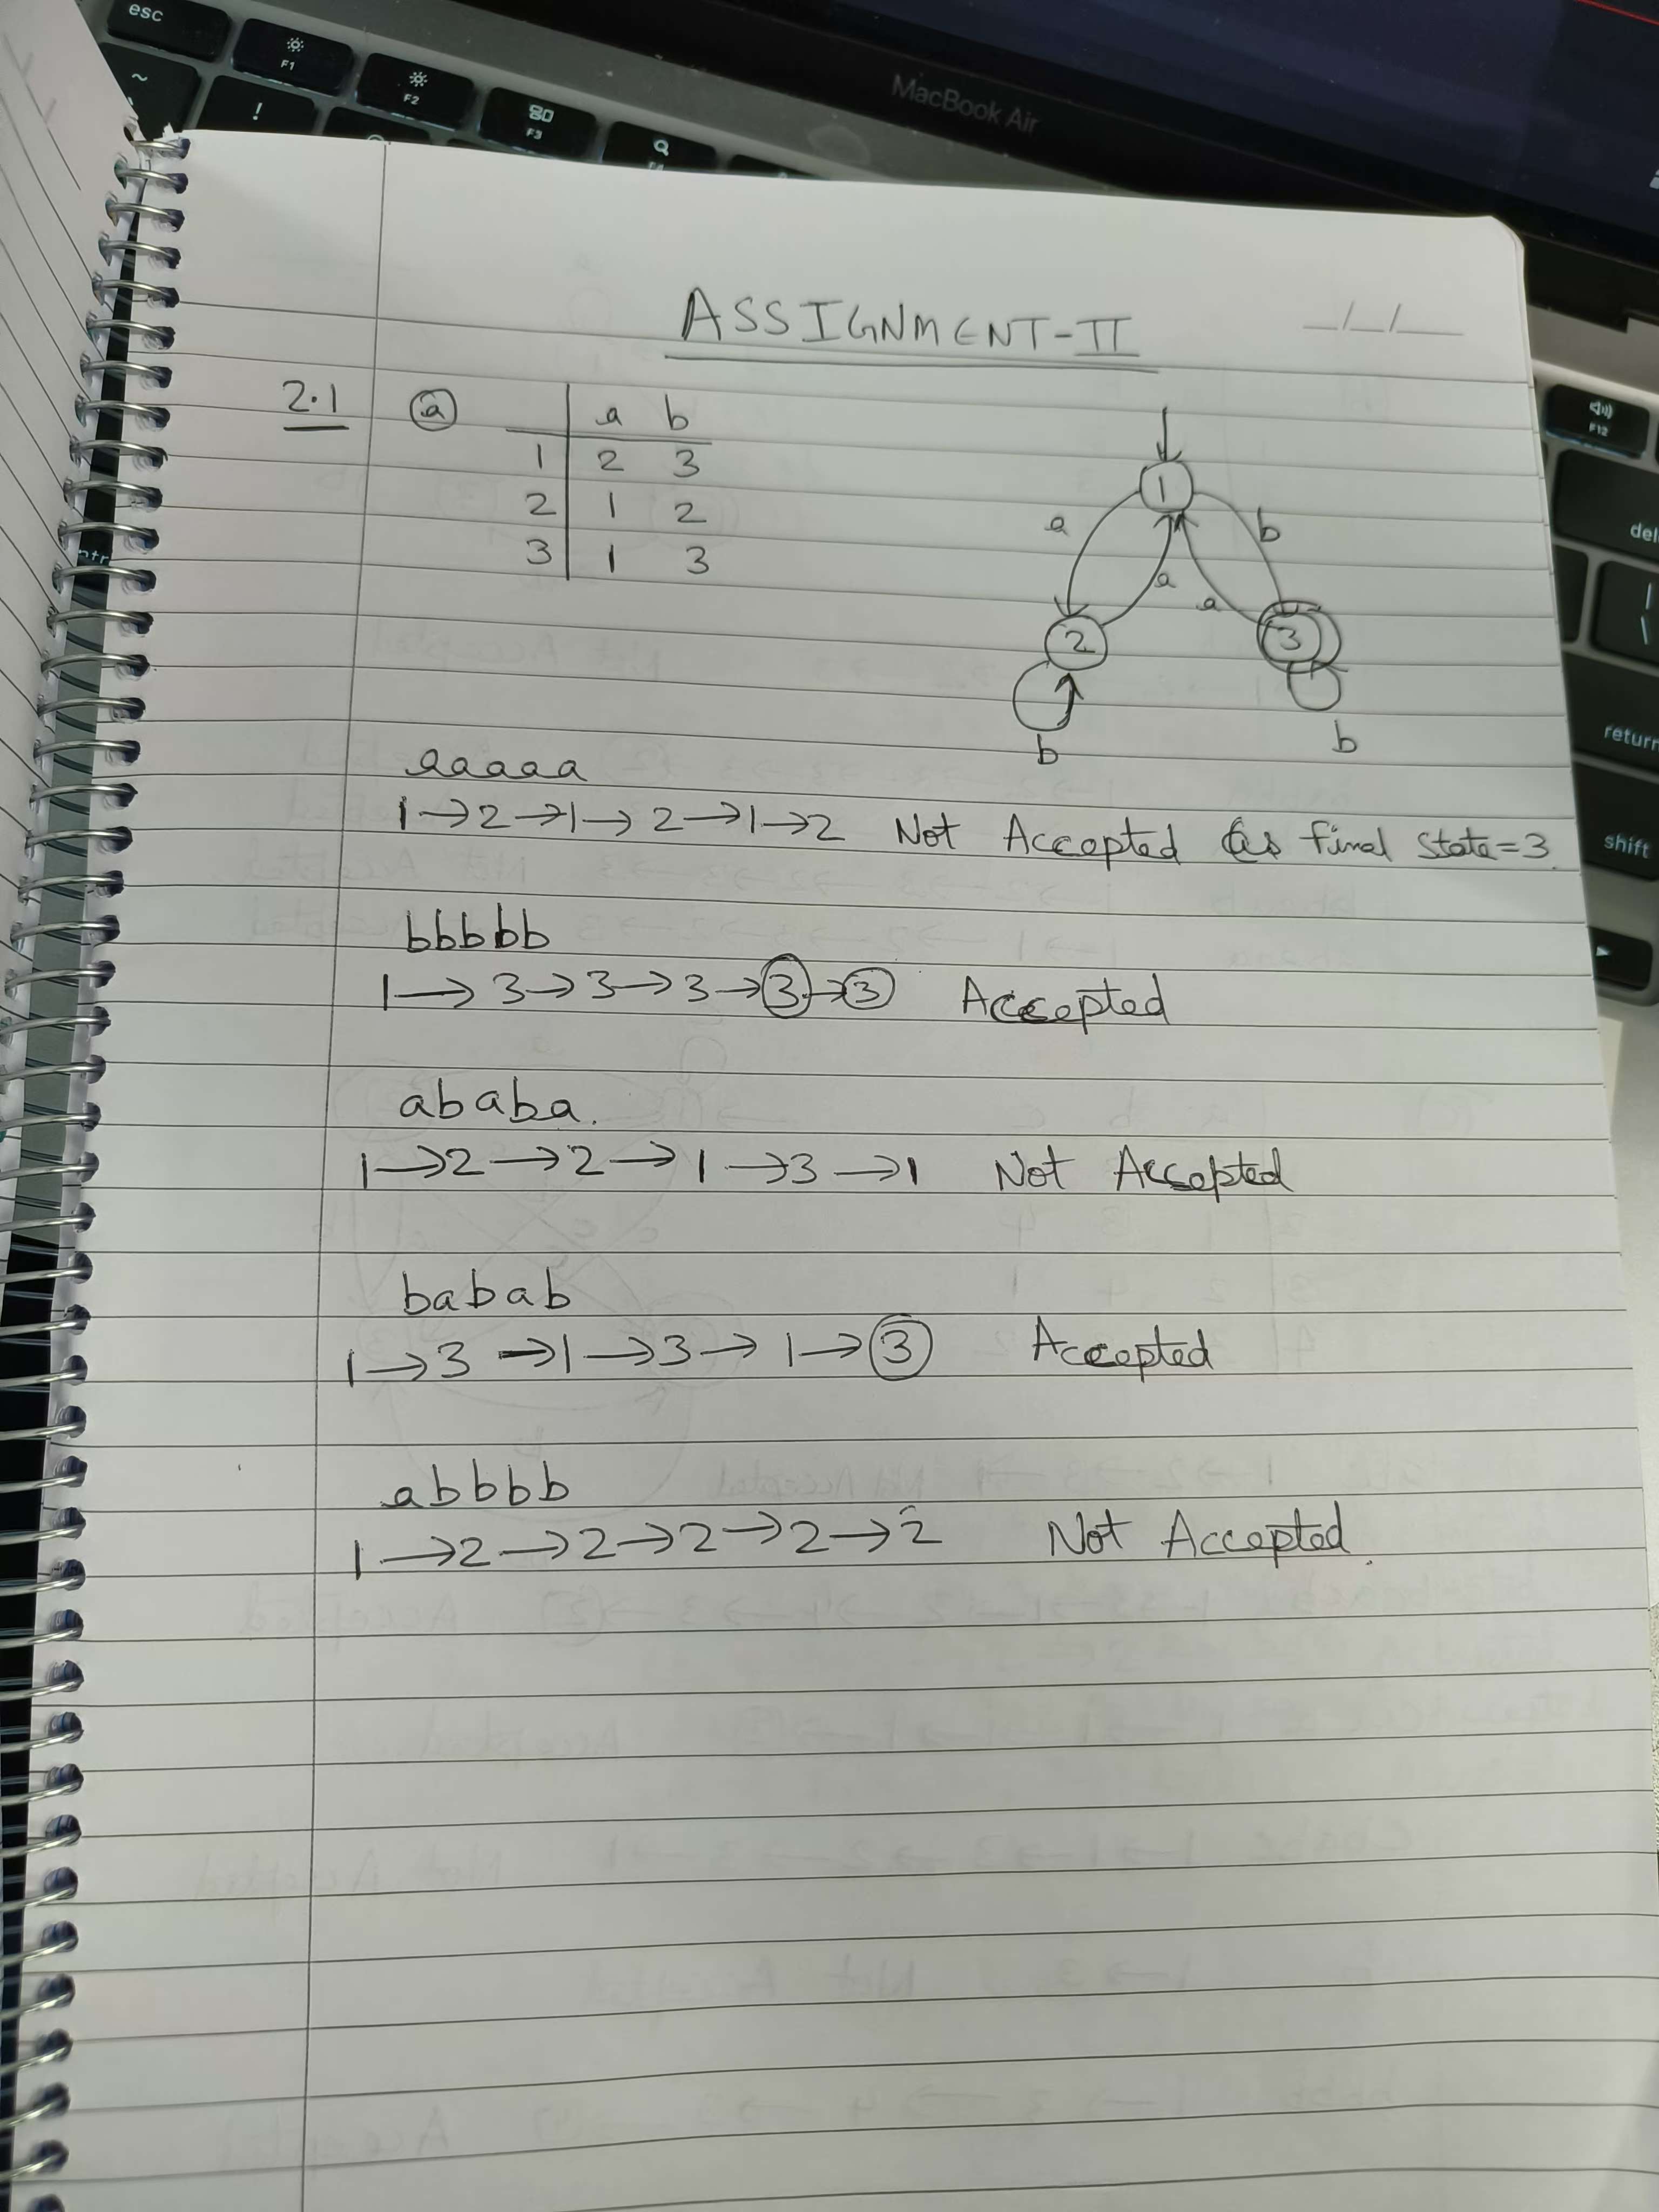 esc
F1
F2
F3
~
!
MacBook Air
F12
del
return
shift
ASSIGNMENT-II
_/_/__
2.1 (a)
a b
1 2 3
2 1 2
3 1 3
1
a b
a a
2 3
b b
aaaaa
1→2→1→2→1→2 Not Accepted as final state=3
bbbbb
1→3→3→3→3→3 Accepted
ababa.
1→2→2→1→3→1 Not Accepted
babab
1→3→1→3→1→3 Accepted
abbbb
1→2→2→2→2→2 Not Accepted.